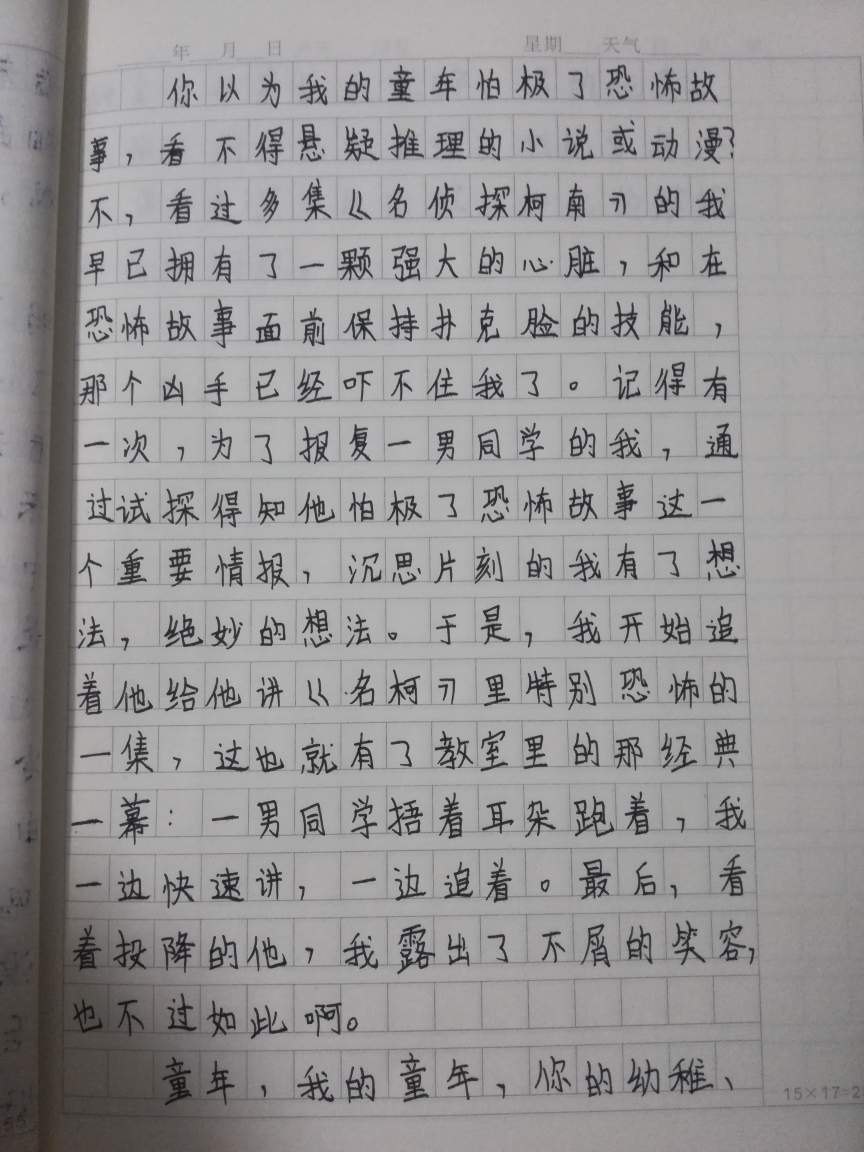 年 月 日 星期 天气
你以为我的童年怕极了恐怖故
事，看不得悬疑推理的小说或动漫？
不，看过多集《名侦探柯南》的我
早已拥有了一颗强大的心脏，和在
恐怖故事面前保持扑克脸的技能，
那个凶手已经吓不住我了。记得有
一次，为了报复一男同学的我，通
过试探得知他怕极了恐怖故事这一
个重要情报，沉思片刻的我有了想
法，绝妙的想法。于是，我开始追
着他给他讲《名柯》里特别恐怖的
一集，这也就有了教室里的那经典
一幕：一男同学捂着耳朵跑着，我
一边快速讲，一边追着。最后，看
着投降的他，我露出了不屑的笑容，
也不过如此啊。
童年，我的童年，你的幼稚、
15×17=2